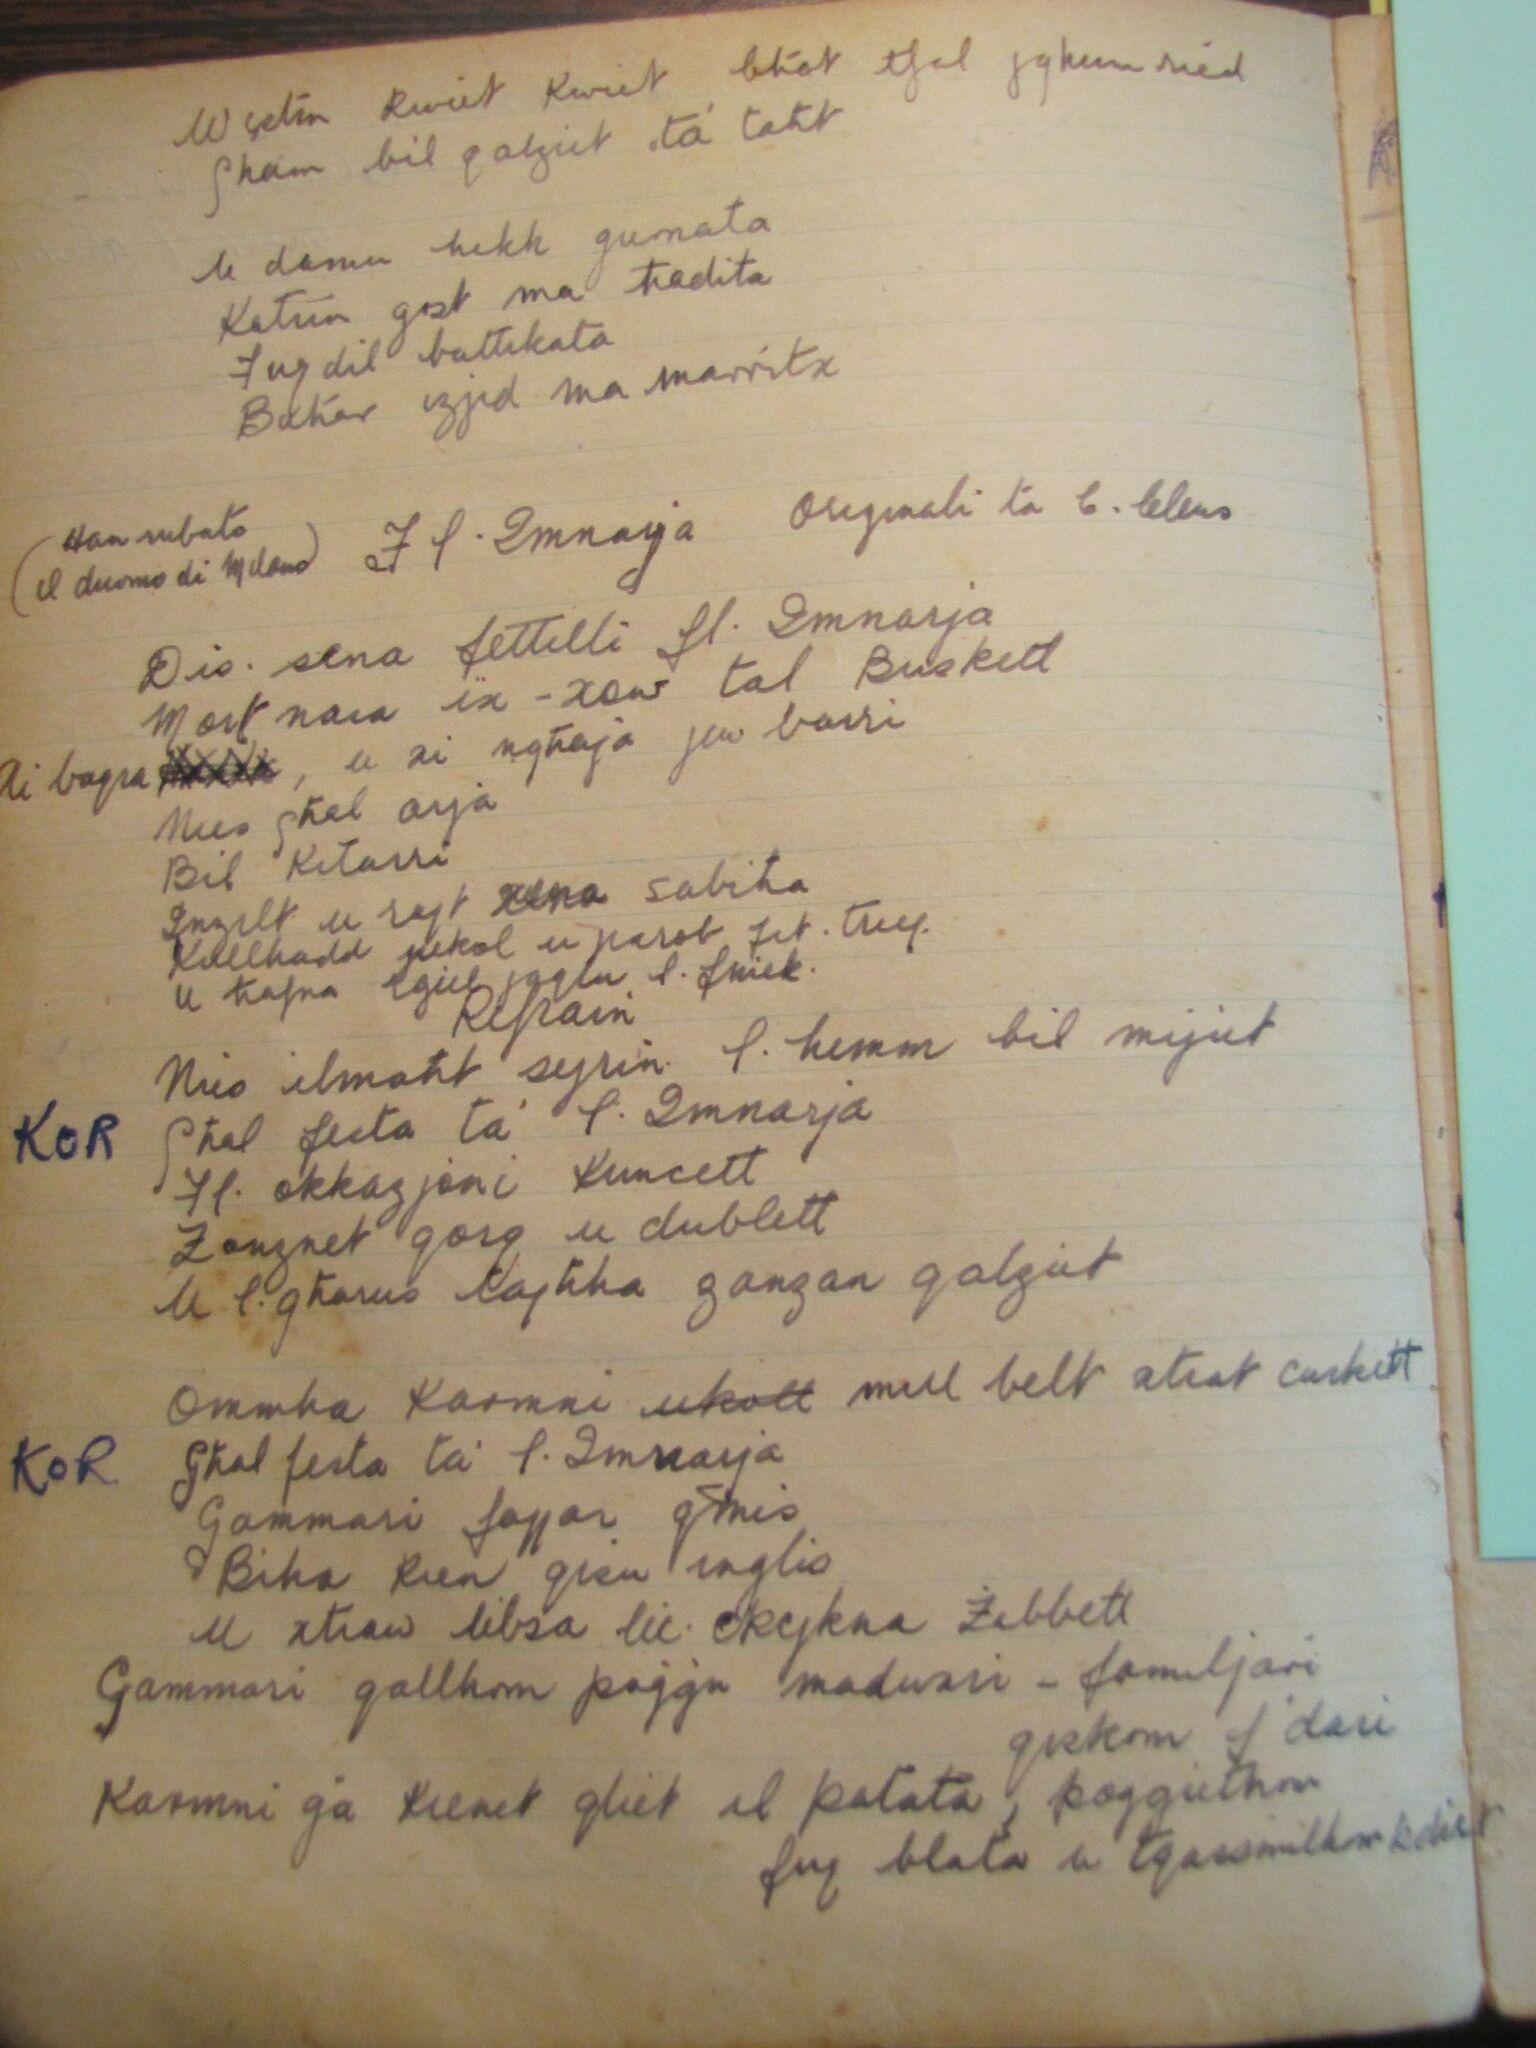 U qetin kwiet kwiet bħat tfal jgħum ried
Għam bil qalziet ta' taħt
U damu hekk gurnata
Katrin gost ma ħadita
Fuq dil battikata
Baħar izjed ma marritx
(Han rubato
il duomo di Milano)
F l. Imnarja Originali ta C. Clews
Dis. sena fettilli fl. Imnarja
Mort nara ix-xow tal Buskett
Xi baqra, u xi ngħaja jew barri
Nies għal arja
Bil Kitarri
Inzilt u rajt xena sabiħa
Kullhadd jiekol u jixrob fit. triq.
u ħafna tgiel jaqlu l. fniek.
Refrain
Nies ilmaħt sejrin l. hemm bil mijiet
KOR Għal festa ta' l. Imnarja
Fl. okkazjoni Kuncett
Zanznet gorg u dublett
U l. għarus tagħha zanzan qalziet
Ommha Karmni mill belt xtrat curkett
KOR Għal festa ta' l. Imnarja
Gammari fappar gmis
Biha kien gisu inglis
U xtraw libsa lic. ckejkna Żabbett
Gammari qallhom poġġu madwari - familjari
qiskom f'dari
Karmni ġa kienet qliet il patata, poggiethom
fuq blata u tqassmilhom bdiet